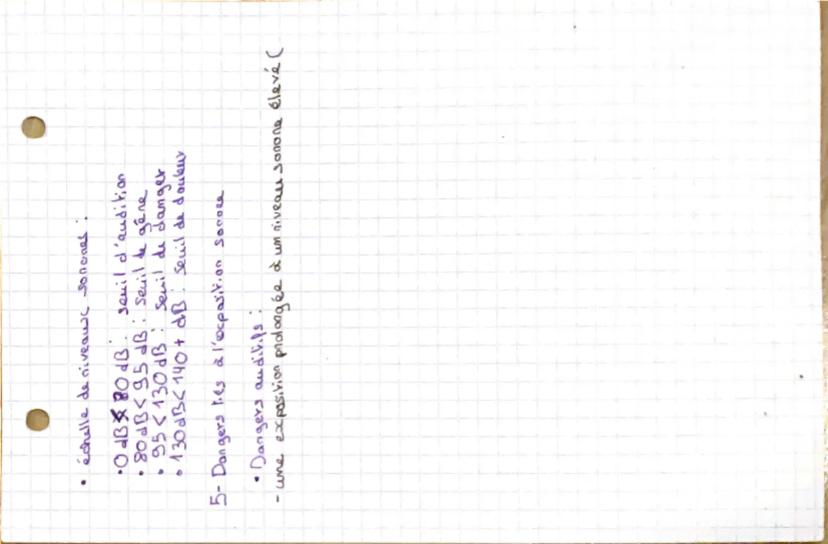 • échelle de niveaux sonores :
• 0 dB < 80 dB : seuil d'audition
• 80 dB < 95 dB : seuil de gêne
• 95 < 130 dB : seuil de danger
• 130 dB < 140 + dB : seuil de douleur
5- Dangers liés à l'exposition sonore
• Dangers auditifs :
- une exposition prolongée à un niveau sonore élevé (